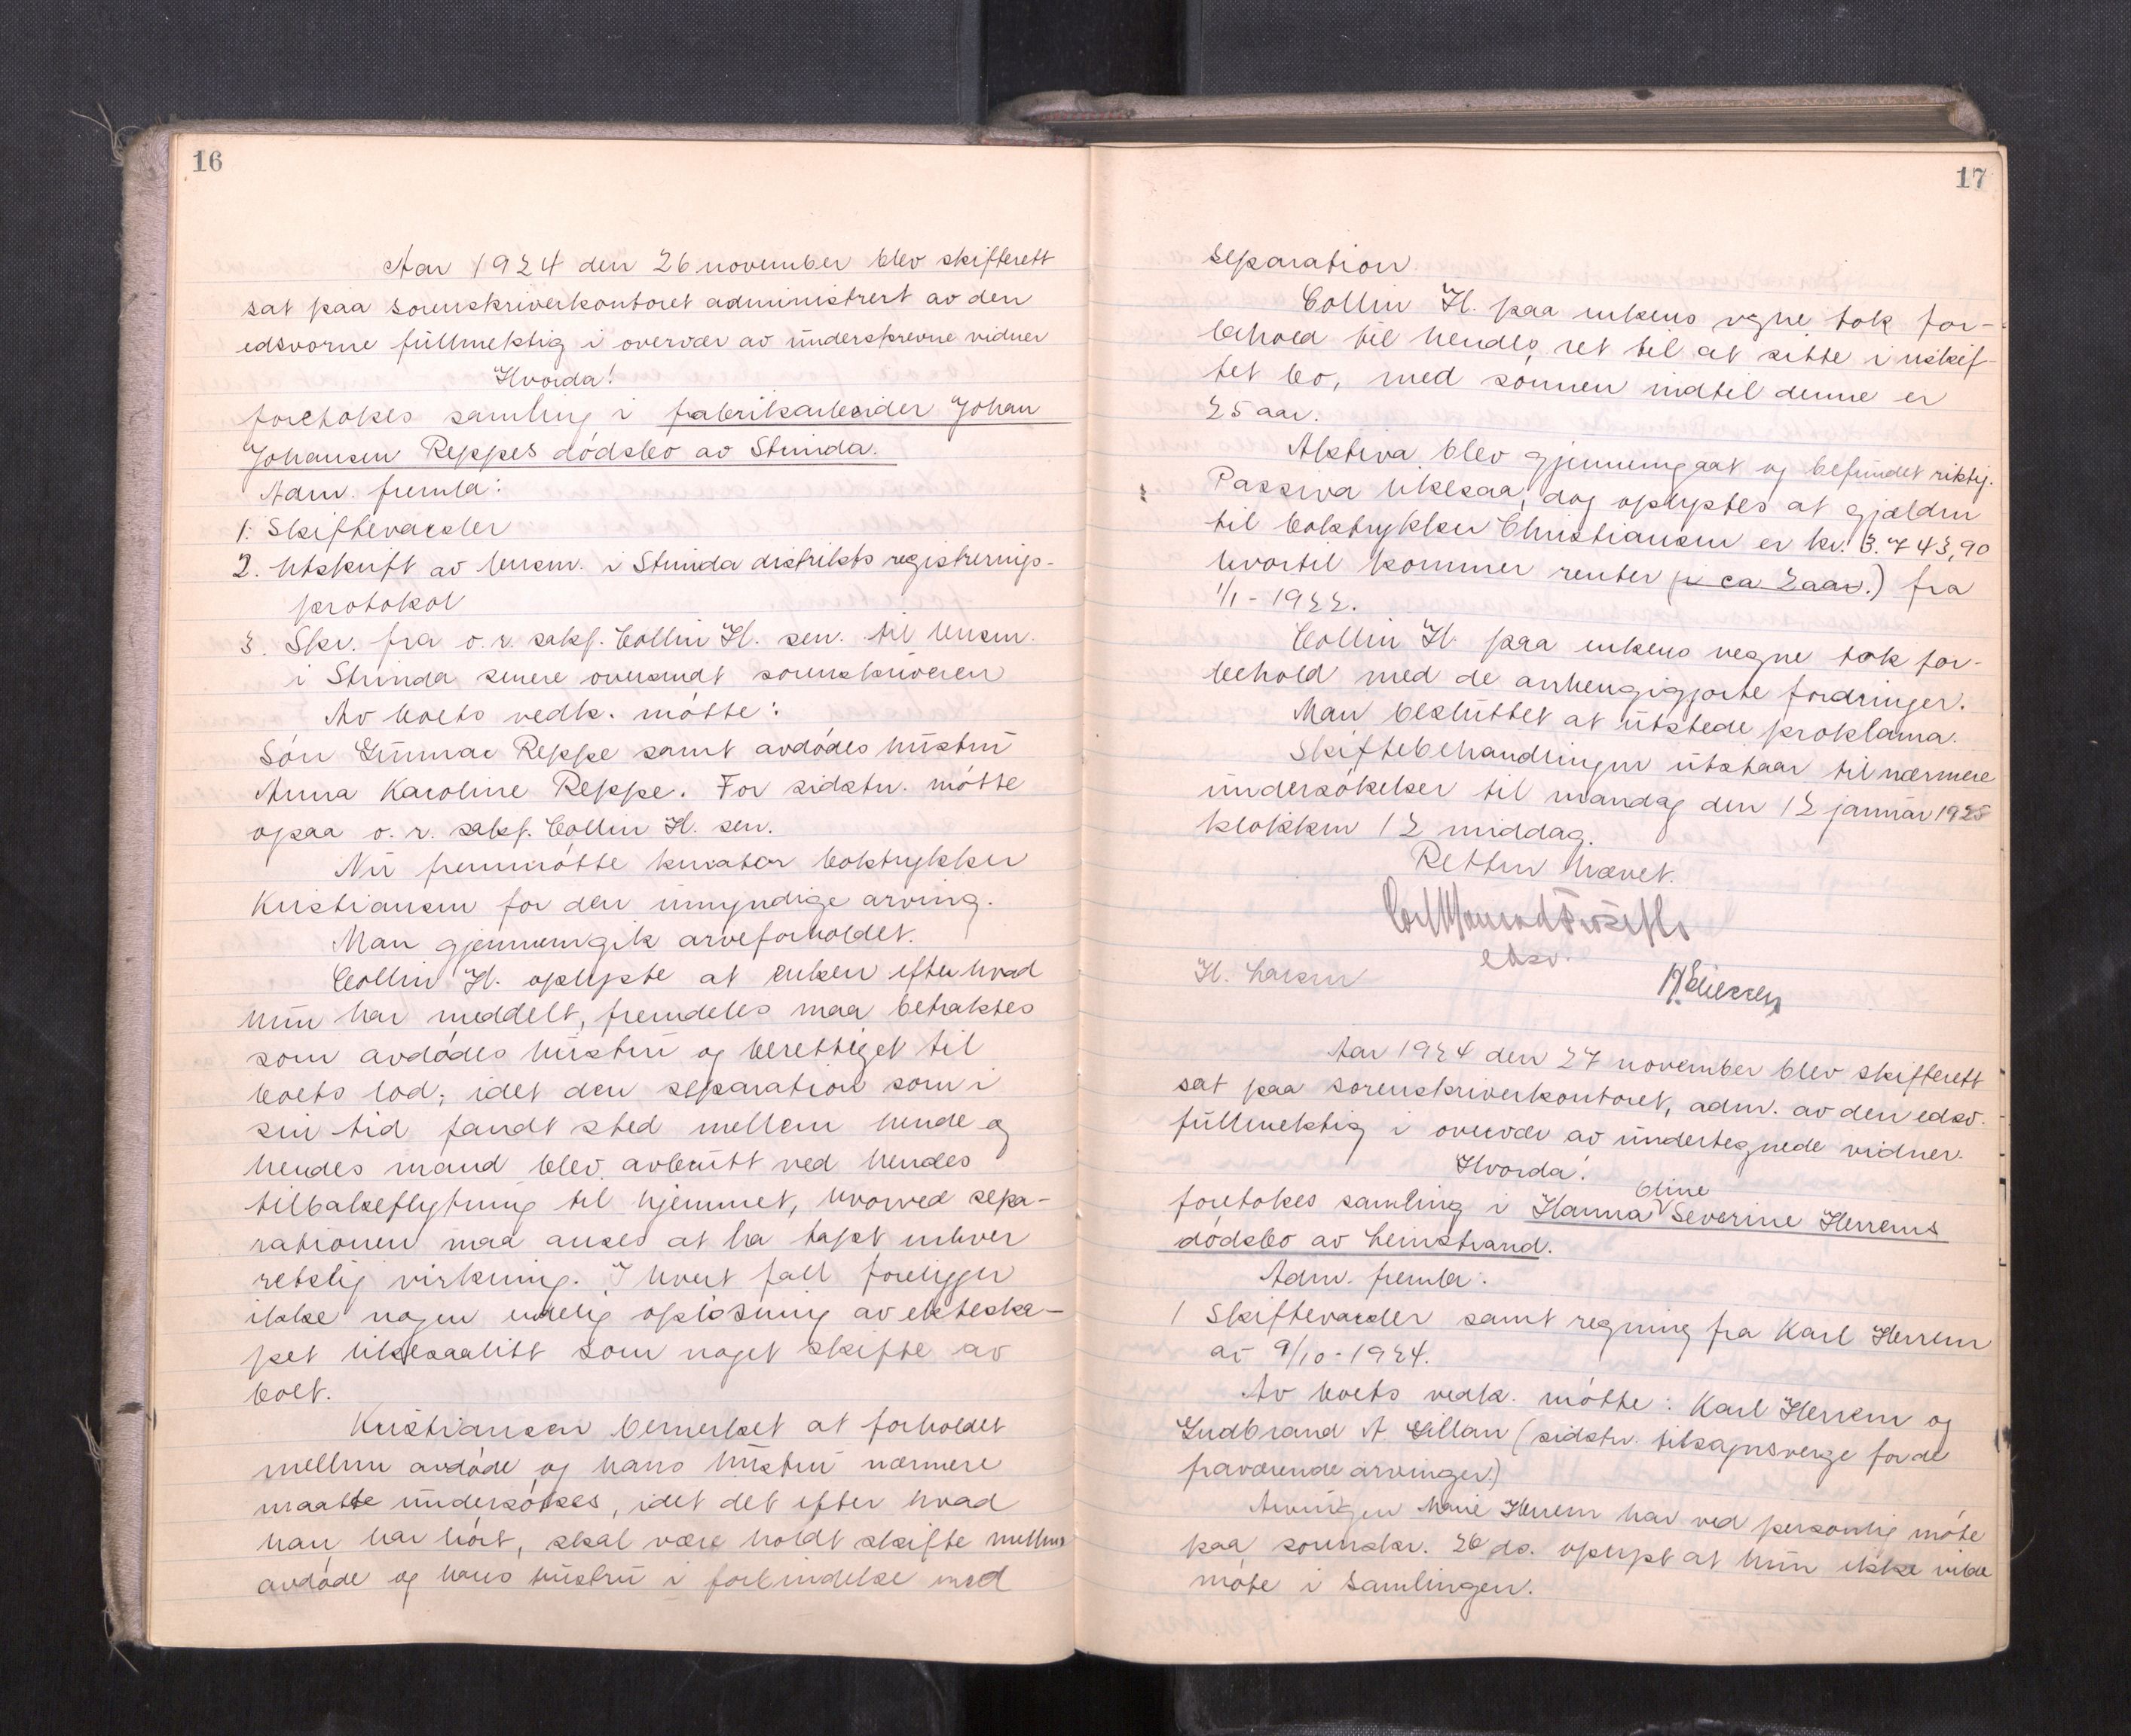 16
Aar 1924 den 26 november blev skifterett
sat paa sorenskriverkontoret administrert av den
edsvorne fullmektig i overvær av underskrevne vidner
Hvorda!
foretokes samling i fabrikarbeider Johan
Johansen Reppes dödsbo av Strinda.
Adm. fremla:
1. Skiftevarsler
2. Utskrift av lensm. i Strinda distrikts registrerings-
protokol
3. Skr. fra o. r. sakf. Collin H. sen. til lensm.
i Strinda senere oversendt sorenskriveren
Av boets vedk. mötte:
Sön Gunnar Reppe samt avdödes hustru
Anna Karoline Reppe. For sidstn. mötte
opsaa o. r. sakf. Collin H. sen.
Nu fremmötte kurator boktrykker
Kristiansen for den umyndige arving.
Man gjennemgik arveforholdet.
Collin H. oplyste at enken efter hvad
hun har meddelt, fremdeles maa betraktes
som avdödes hustru og berettiget til
boets lod, idet den separation som i
sin tid fandt sted mellem hende og
hendes mand blev avbrutt ved hendes
tilbakeflytning til hjemmet, hvorved sepa-
rationen maa anses at ha tapt enhver
retslig virkning. I hvert fall foreligger
ikke nogen endelig oplösning av ekteska-
pet likesaalitt som noget skifte av
boet.
Kristiansen bemerket at forholdet
mellem avdöde og hans hustru nærmere
maatte undersökes, idet det efter hvad
han har hört, skal være holdt skifte mellem
avdöde og hans hustru i forbindelse med
17
separation
Collin H. paa enkens vegne tok for-
behold til hendes ret til at sitte i uskif-
tet bo, med sönnen indtil denne er
25 aar.
Aktiva blev gjennemgaat og befundet riktig.
Passiva likesaa, dog oplystes at gjælden
til boktrykker Christiansen er kr. 3.743,90
hvortil kommer renter (i ca 2 aar.) fra
1/1 - 1922.
Collin H. paa enkens vegne tok for-
behold med de anhengigjorte fordringer.
Man besluttet at utstede proklama.
Skiftebehandlingen utstaar til nærmere
undersökelser til mandag den 12 januar 1925
klokken 12 middag.
Retten hævet.
edsv.
H. Larsen
Aar 1924 den 27 november blev skifterett
sat paa sorenskriverkontoret, adm. av den edsv.
fullmektig i overvær av undertegnede vidner.
Hvorda!
foretokes samling i Hanna Oline Severine Herrems
dödsbo av Leinstrand.
Adm. fremla:
1 Skiftevarsler samt regning fra Karl Herrem
av 9/10 - 1924.
Av boets vedk. mötte: Karl Herrem og
Gudbrand A Gillan (sidstn. tilsapnsverge for de
fraværende arvinger.)
Arvingen Marie Herrem har ved personlig möte
paa sorenskr. 26 ds. oplyst at hun ikke vilde
möte i samlingen.